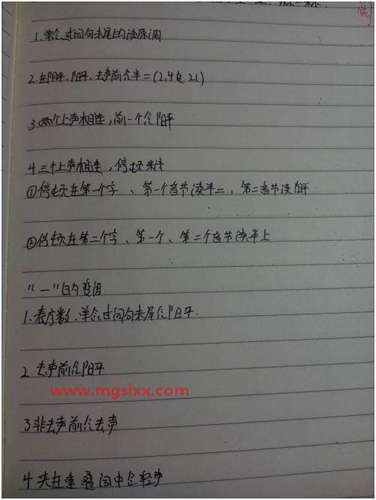 1.单念、词句末尾念原调
2.在阴平、阳平、去声前念半上(2,4变21)
3.两个上声相连,前一个念阳平
4.三个上声相连,停顿
①停顿在第一个字、第一个音节读半上、第二音节读阳
②停顿在第二个字、第一个、第二个音节读
"一"的变调
1.表序数、单念、词句末尾念阴平
2.去声前念阳平
www.mgsixx.com
3.非去声前念去声
4.夹在重叠词中念轻声